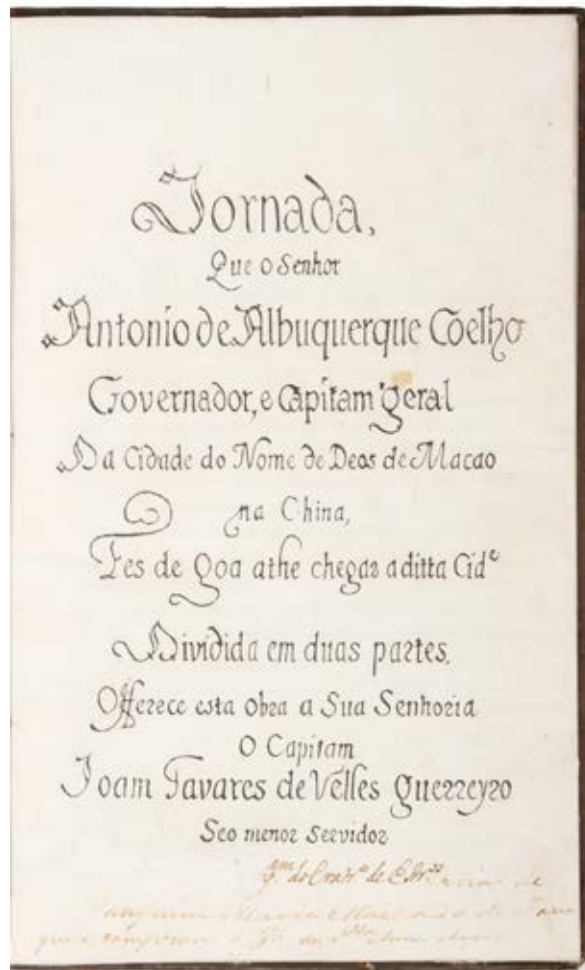 Jornada,
Que o Senhor
Antonio de Albuquerque Coelho
Governador, e Capitam geral
Da Cidade do Nome de Deos de Macao
na China,
Fes de Goa athe chegar a ditta Cid^e
Dividida em duas partes.
Offerece esta obra a Sua Senhoria
O Capitam
Joam Tavares de Velles Guerreyro
Seo menor Servidor